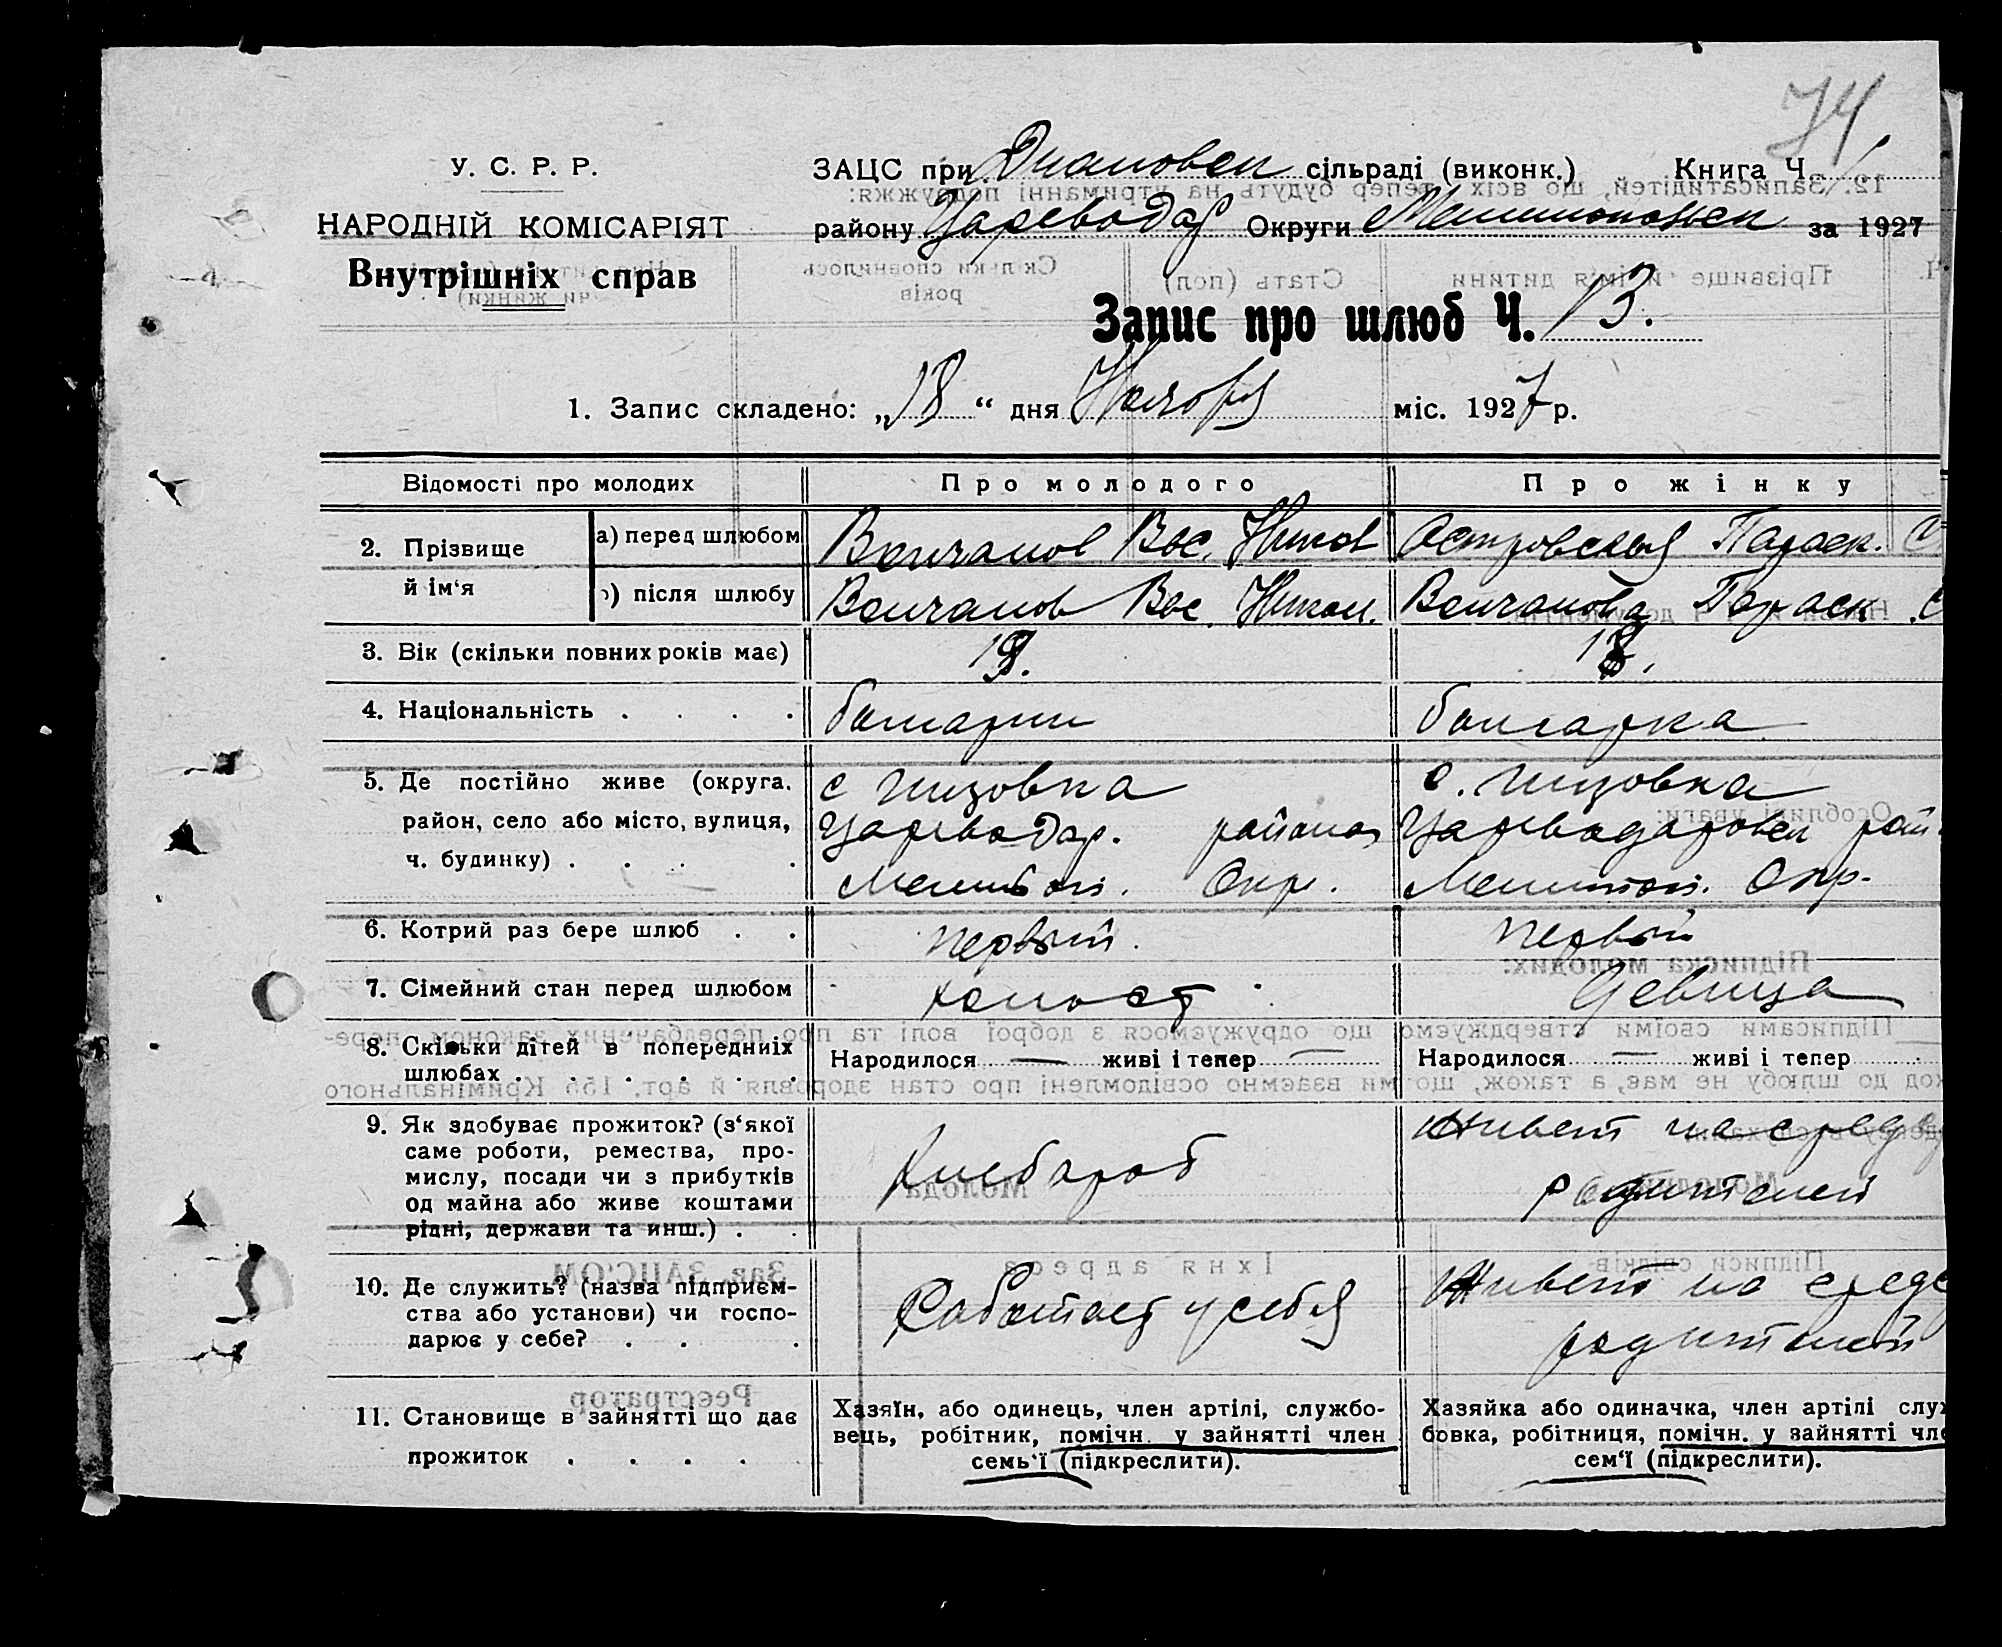 74
У. С. Р. Р.
НАРОДНІЙ КОМІСАРІЯТ
Внутрішніх справ
ЗАЦС при Диановск сільраді (виконк.) Книга Ч. 1.
району Цареводар Округи Мелитопольск за 1927
Запис про шлюб Ч. 13.
1. Запис складено: „18“ дня Ноября міс. 1927 р.
Відомості про молодих Про молодого Про жінку
2. Прізвище й ім‘я
а) перед шлюбом Волчанов Вас. Никол Островская Параск. С
б) після шлюбу Волчанов Вас. Никол. Волчанова Параск. С
3. Вік (скільки повних років має) 19. 18.
4. Національність . . . . болгарин болгарка
5. Де постійно живе (округа, район, село або місто, вулиця, ч. будинку) . . . .
с Гизовка
Цареводар. района
Мелитоп. Окр.
с. Гизовка
Цареводаровск рай
Мелитоп. Окр.
6. Котрий раз бере шлюб . . первый. первый
7. Сімейний стан перед шлюбом холост девица
8. Скільки дітей в попередниіх шлюбах . . . . . . Народилося — живі і тепер — Народилося — живі і тепер
9. Як здобуває прожиток? (з‘якої
саме роботи, ремества, про-
мислу, посади чи з прибутків
од майна або живе коштами
рідні, держави та инш.) . .
Хлебороб
Живет на сред
родителей
10. Де служить? (назва підприєм-
ства або установи) чи госпо-
дарює у себе? . . .
Работает у себя
Живет на сред
родителей
11. Становище в зайнятті що дає
прожиток . . . .
Хазяїн, або одинець, член артілі, службо-
вець, робітник, помічн. у зайнятті член
семь‘ї (підкреслити).
Хазяйка або одиначка, член артілі служ
бовка, робітниця, помічн. у зайнятті чле
сем‘ї (підкреслити).